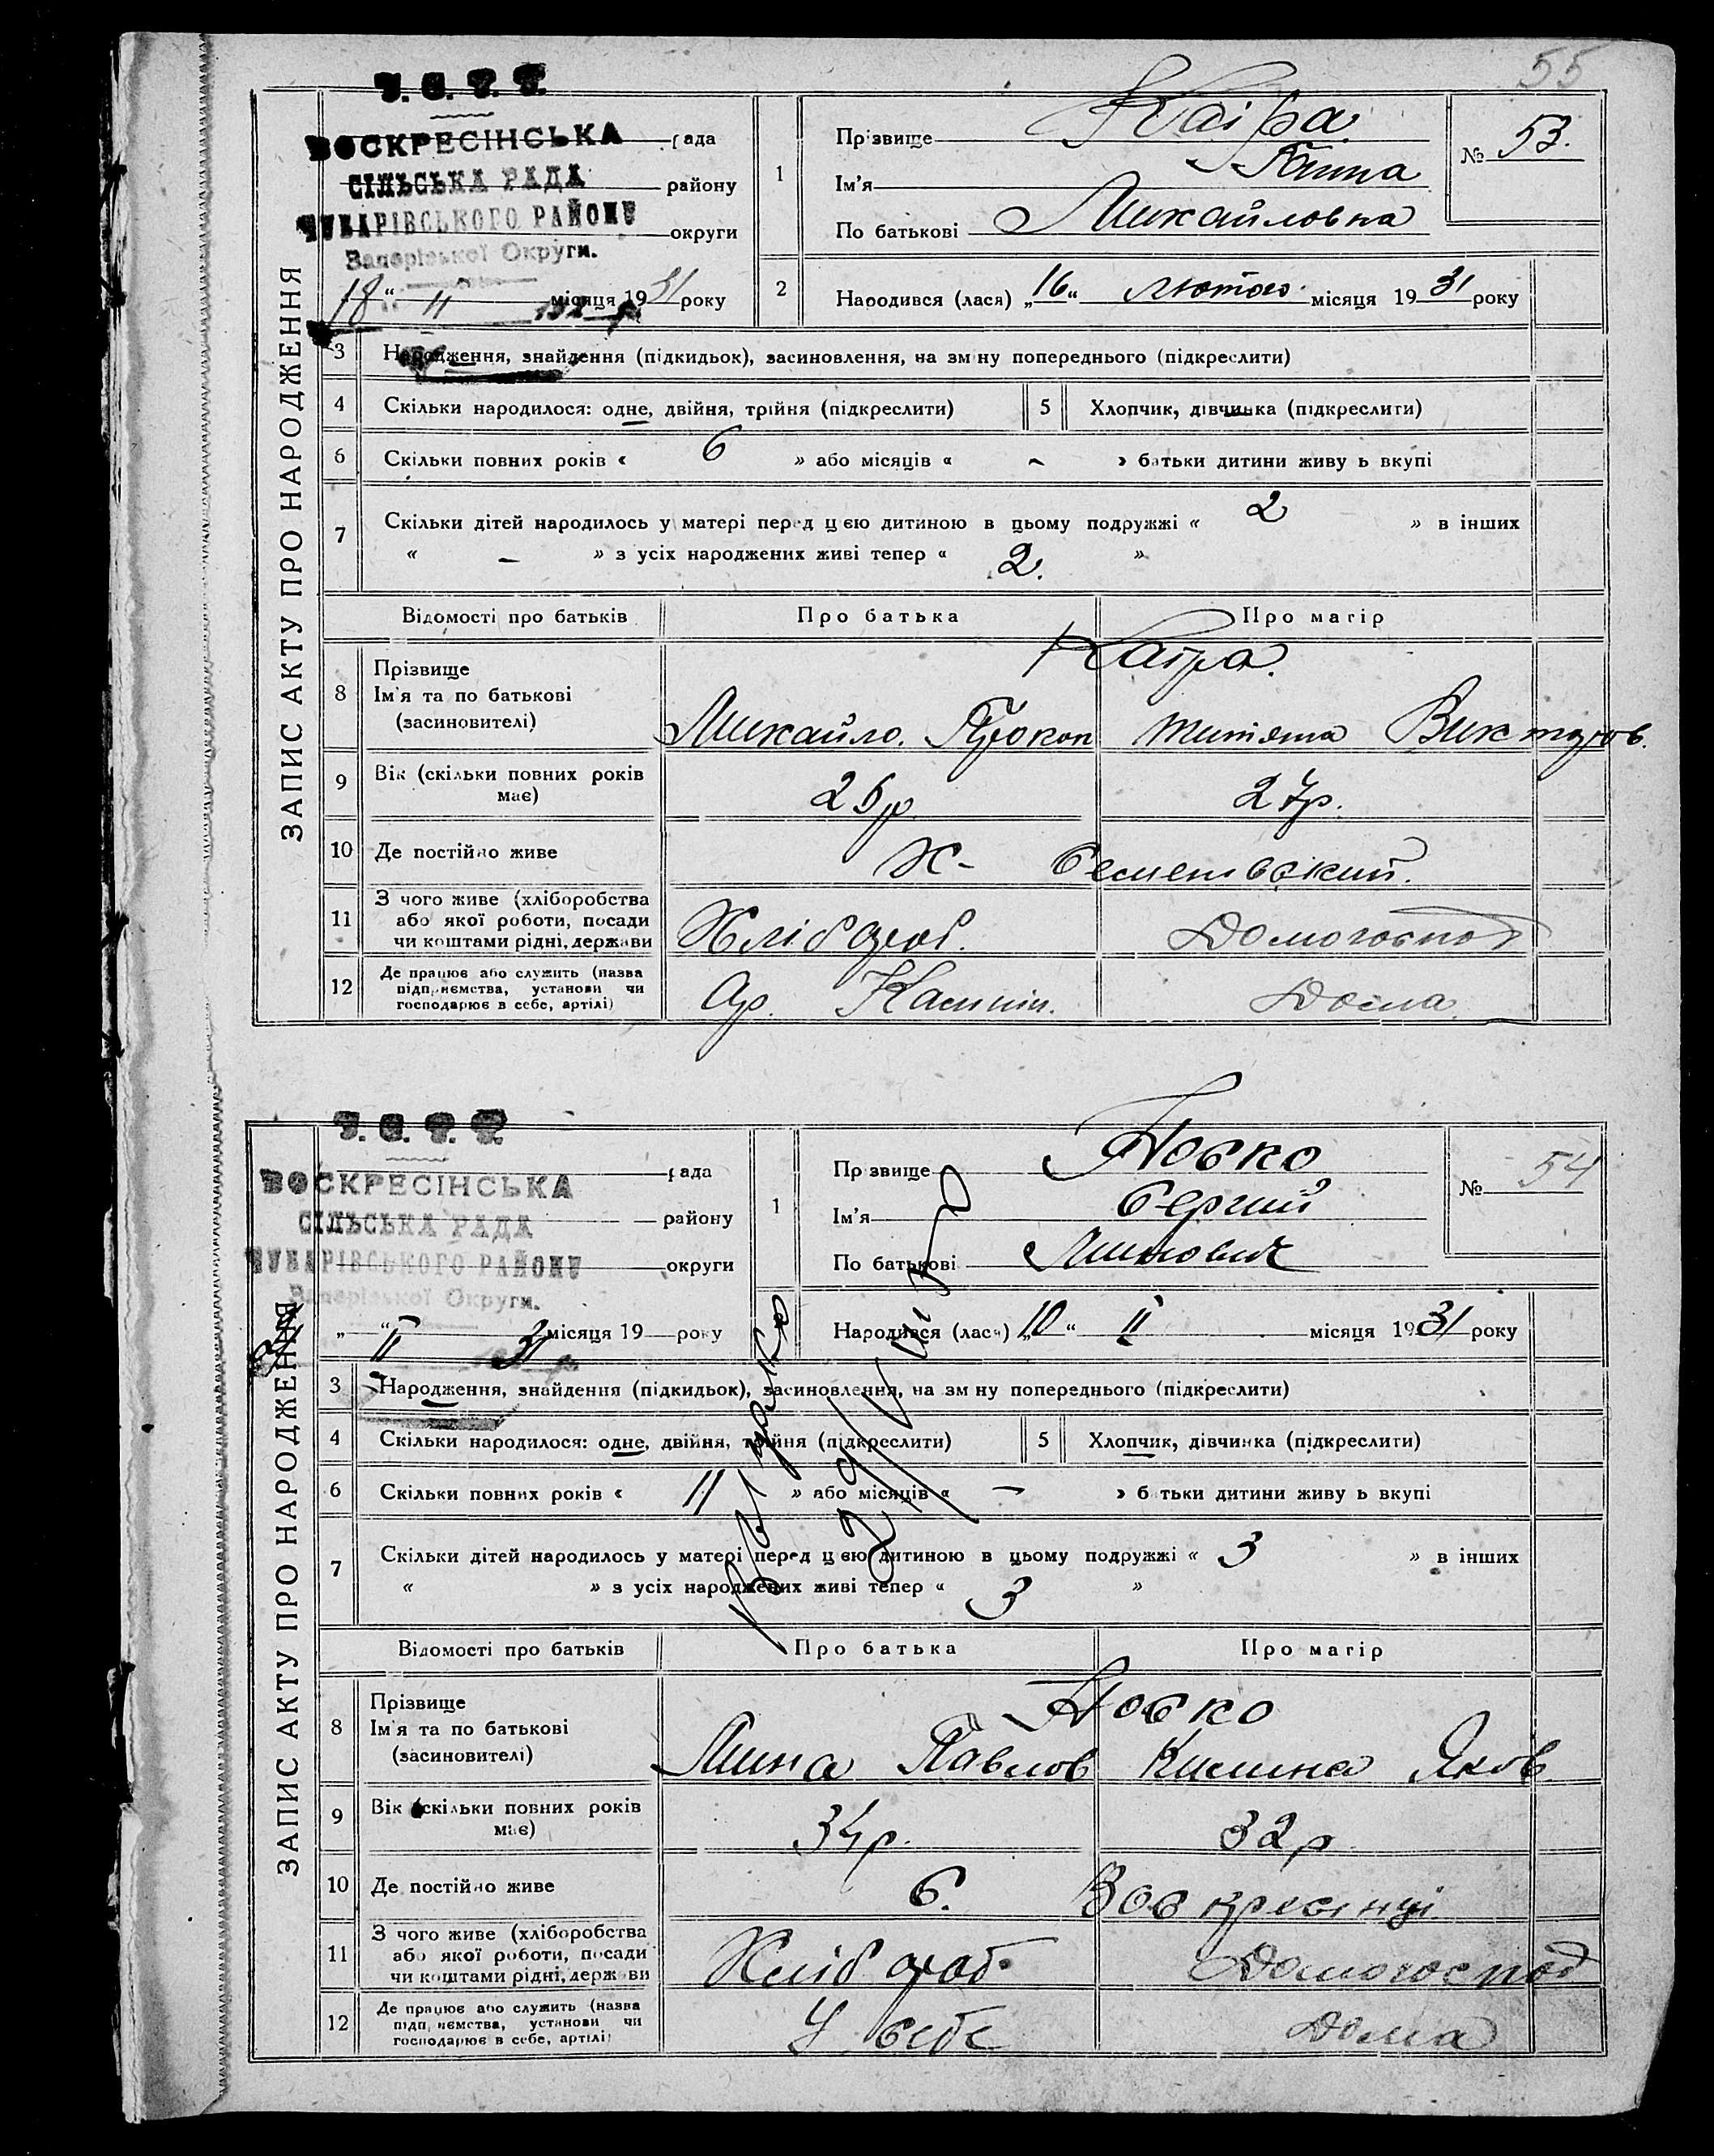 55
У. С. Р. Р.
ВОСКРЕСІНСЬКА рада
СІЛЬСЬКА РАДА району
ЧУБАРІВСЬКОГО РАЙОНУ округи
Запорізької Округи.
18 " II місяця 1931 року
ЗАПИС АКТУ ПРО НАРОДЖЕННЯ
1 Прізвище Каіра
Ім'я Ганна
По батькові Михайловна
№ 53.
2 Народився (лася) „16" лютого місяця 1931 року
3 Народження, знайдення (підкидьок), засиновлення, на зміну попереднього (підкреслити)
4 Скільки народилося: одне, двійня, трійня (підкреслити) 5 Хлопчик, дівчинка (підкреслити)
6 Скільки повних років « 6 » або місяців « - » батьки дитини живуть вкупі
7 Скільки дітей народилось у матері перед цією дитиною в цьому подружжі « 2 » в інших
« – » з усіх народжених живі тепер « 2. »
Відомості про батьків Про батька Про матір
8 Прізвище Каіра.
Ім'я та по батькові
(засиновителі) Михайло. Прокоп Титяна Викторов.
9 Вік (скільки повних років має) 26р. 27р.
10 Де постійно живе Х- Семенівский.
11 З чого живе (хліборобства
або якої роботи, посади
чи коштами рідні, держави Хлібороб. Домогоспод
12 Де працює або служить (назва
підприємства, установи чи
господарює в себе, артілі) Ар. Калинін. Дома.
У. С. Р. Р.
ВОСКРЕСІНСЬКА рада
СІЛЬСЬКА РАДА району
ЧУБАРІВСЬКОГО РАЙОНУ округи
Запорізької Округи.
„ " II 31 місяця 19 року
ЗАПИС АКТУ ПРО НАРОДЖЕННЯ
1 Прізвище Носко
Ім'я Сергий
По батькові Минович
№ 54
Народився (лася) „10" II місяця 1931 року
3 Народження, знайдення (підкидьок), засиновлення, на зміну попереднього (підкреслити)
4 Скільки народилося: одне, двійня, трійня (підкреслити) 5 Хлопчик, дівчинка (підкреслити)
6 Скільки повних років « 11 » або місяців « – » батьки дитини живуть вкупі
7 Скільки дітей народилось у матері перед цією дитиною в цьому подружжі « 3 » в інших
« » з усіх народжених живі тепер « 3 »
Відомості про батьків Про батька Про матір
8 Прізвище Носко
Ім'я та по батькові
(засиновителі) Мина Павлов Килина Яков.
9 Вік (скільки повних років має) 34р. 32р
10 Де постійно живе С. Воскресінці
11 З чого живе (хліборобства
або якої роботи, посади
чи коштами рідні, держави Хлібороб. Домогоспод
12 Де працює або служить (назва
підприємства, установи чи
господарює в себе, артілі) У себе Дома